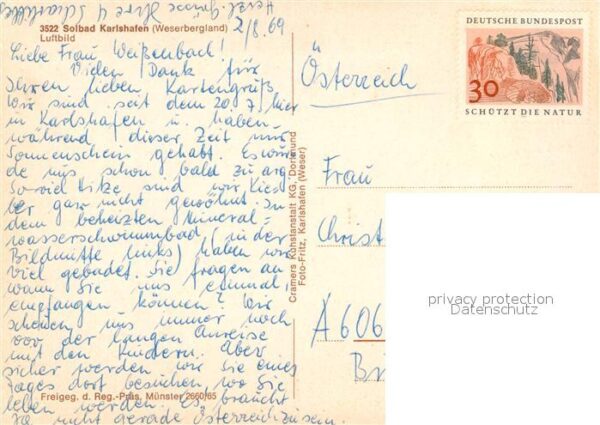 Herzl. Grüsse Ihre
3522 Solbad Karlshafen (Weserbergland)
Luftbild
2/8.69
Liebe Frau Weißenbach!
Vielen Dank für
Ihren lieben Kartengruß.
Wir sind seit dem 20.7. hier
in Karlshafen u. haben
während dieser Zeit nur
Sonnenschein gehabt. Es wür
de uns schon bald zu arg.
Soviel Hitze sind wir
gar nicht gewöhnt. In
dem beheizten Mineral=
wasserschwimmbad (in der
Bildmitte links) haben wir
viel gebadet. Sie fragen an
wann Sie uns einmal
empfangen können? Wir
scheuen uns immer noch
vor der langen Anreise
mit den Kindern. Aber
sicher werden wir Sie eines
Tages dort besuchen, wo Sie
leben werden. Es braucht
ja nicht gerade Österreich zu sein.
Freigeg. d. Reg.-Präs. Münster 2660/65
Cramers Kunstanstalt KG, Dortmund
Foto-Fritz, Karlshafen (Weser)
DEUTSCHE BUNDESPOST
30
SCHÜTZT DIE NATUR
Österreich
Frau
Christ
A 606
Br
privacy protection
Datenschutz